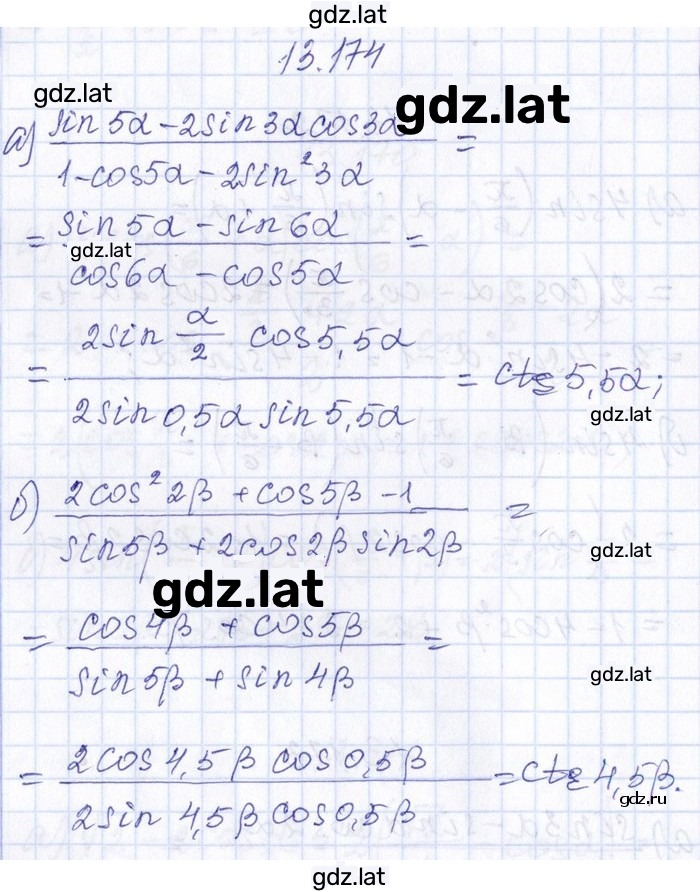 gdz.lat
13.174
gdz.lat
gdz.lat
а) (sin5α - 2sin3αcos3α)/(1 - cos5α - 2sin²3α) =
= (sin5α - sin6α)/(cos6α - cos5α) =
gdz.lat
= (2sin α/2 cos5,5α)/(2sin0,5α sin5,5α) = ctg5,5α;
gdz.lat
б) (2cos²2β + cos5β - 1)/(sin5β + 2cos2βsin2β) =
gdz.lat
gdz.lat
= (cos4β + cos5β)/(sin5β + sin4β) =
gdz.lat
= (2cos4,5β cos0,5β)/(2sin4,5βcos0,5β) = ctg4,5β.
gdz.ru
gdz.lat